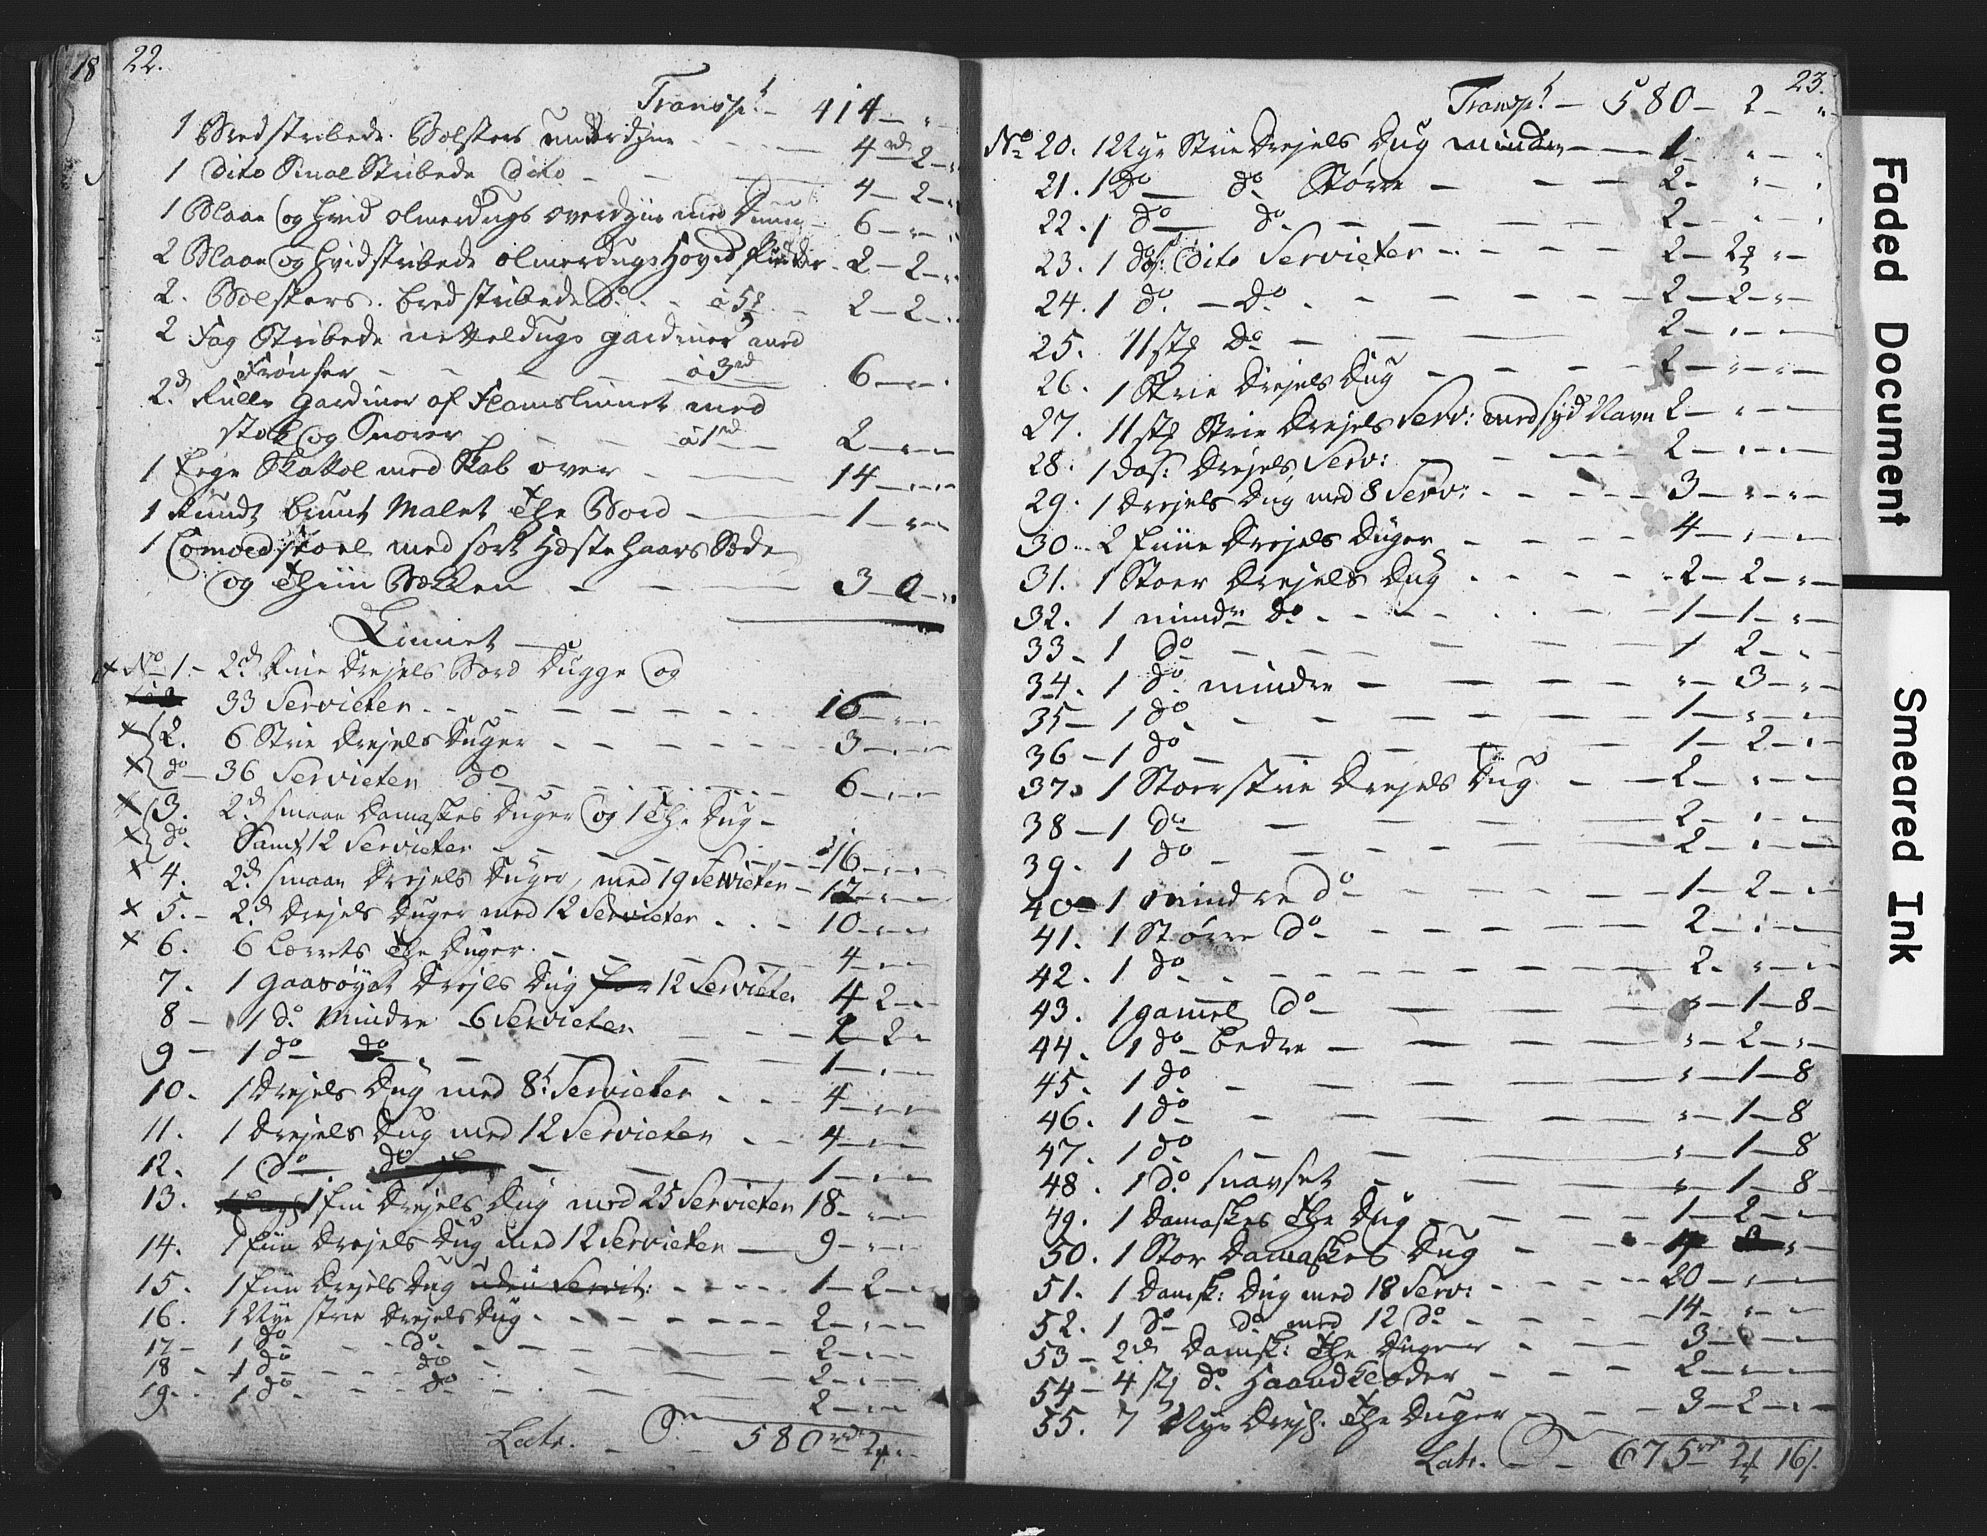 18
22.
Transpt – 414 – " –
1 Bredstribede Bolsters underdyne – – – 4rd – 2 – "
1 dito Smal Stribede dito – – – 4 – 2 – "
1 Blaae og hvid olmerdugs overdyne med Duun – 6 – " – "
2 Blaae og hvidstribede olmerdugs Hovedpuder – 2 – 2 – "
2. Bolsters. bredstribede do. – à 5 – 2 – 2 – "
2 Fag Stribede netteldugs gardiner med
Frønser – – – à 3rd – 6 – " – "
2d Rulle Gardiner af Flamslinnet med
stok og Snorer – – à 1rd – 2 – " – "
1 Eege Skattol med Skab over – – 14 – " – "
1 Rundt bruunt Malet The Bord – – 1 – " – "
1 Comoedstoel med sort Hæstehaars Sæde
og Thiin Bekken – – – 3 – 0 – "
Linnet –
x No 1. – 2d Fine Drejels Bord Dugge og
33 Servieter – – – 16 – " – "
x 2. 6 Strie Drejels Duger – – – 3 – " – "
x do – 36 Servieter do – – – 6 – " – "
x 3. 2d smaae Damaskes Duger og 1 The Dug –
x do. Samt 12 Servieter – – – 16 – " – "
x 4. 2d smaae Drejels Duger, med 19 Servieter – 12 – " – "
x 5. – 2d Drejels Duger med 12 Servieter – – – 10 – " – "
x 6. 6 Lærrets The Duger – – – 4 – " – "
7. 1 Gaasøyet Drejls Dug for 12 Servieter 4 – 2 – "
8 – 1 do Mindre – 6 Servieter – – 2 – 2 – "
9 – 1 do – do – – – 1 – " – "
10. 1 Drejels Dug med 8t Servieter – – – 4 – " – "
11. 1 Drejels Dug med 12 Servieter – – 4 – " – "
12. 1 do – do – – – 1 – " – "
13. 1 fin Drejels Dug med 25 Servieter 18 – " – "
14. 1 fiin Drejels Dug med 12 Servieter – 9 – " – "
15. 1 fiin Drejels Dug uden Serviet: – – – 1 – 2 – "
16. 1 Nye strie Drejels Dug – – – 2 – " – "
17 – 1 do – – do – – – 2 – " – "
18 – 1 do – – do – – – 2 – " – "
19. – 1 do – – do – – – 2 – " – "
Latr. – – 580rd – 24 –
23.
Transpt – 580 – 2 – "
No 20. 1 Nye Strie Drejels Dug mindre – – 1 – " – "
21. 1 do – do Større – – – 2 – " – "
22. 1 do – do – – – 2 – " – "
23. 1 dos: dito Servieter – – – 2 – 2 – "
24. 1 do. – do. – – – 2 – 2 – "
25. 11 stk do – – – 2 – " – "
26. 1 Strie Drejels Dug – – – 2 – " – "
27. 11 stk Strie Drejels Serv: med syd Navn 2 – " – "
28. 1 dos: Drejels Serv: – – – 2 – " – "
29. 1 Drejels Dug med 8 Serv: – – – 3 – " – "
30. – 2 Fiine Drejels Duger – – – 4 – " – "
31. 1 Stoer Drejels Dug – – – 2 – 2 – "
32. 1 mindre do – – – 1 – 1 – "
33 – 1 do – – – 1 2 – "
34. 1 do. mindre – – – " – 3 – "
35 – 1 do – – – 1 – " – "
36 – 1 do – – – 1 – 2 – "
37. 1 Stoer strie Drejels Dug – – 2 – " – "
38 – 1 do – – – 2 – " – "
39. 1 do – – – 2 – " – "
40 – 1 mindre do – – – 1 – 2 – "
41. 1 Større do – – – 2 – " – "
42. 1 do. – – – 2 – " – "
43. 1 gamel do – – – " – 1 – 8 –
44. 1 do – bedre – – – " – 2 – "
45. 1 do – – – " – 1 – 8
46. 1 do – – – " – 1 – 8
47. 1 do – – – " – 1 – 8
48. 1 do. snavset – – – " – 1 – 8 –
49. 1 Damaskes The Dug – – – 1 – 2 – "
50. 1 Stor Damaskes Dug – – – "
51. 1 Damsk: Dug med 18 Serv: – – – 20 – " – "
52. 1 do do med 12 do – – – 14 – " – "
53 – 2d Damsk: The Duger – – – 3 – " – "
54 – 4 stk do. Haandklæder – – – 2 – " – "
55. 7 Nye Drejs. The Duger – – – 3 – 2 – "
Latr. – – 675rd 24 16s.
Faded Document
Smeared Ink